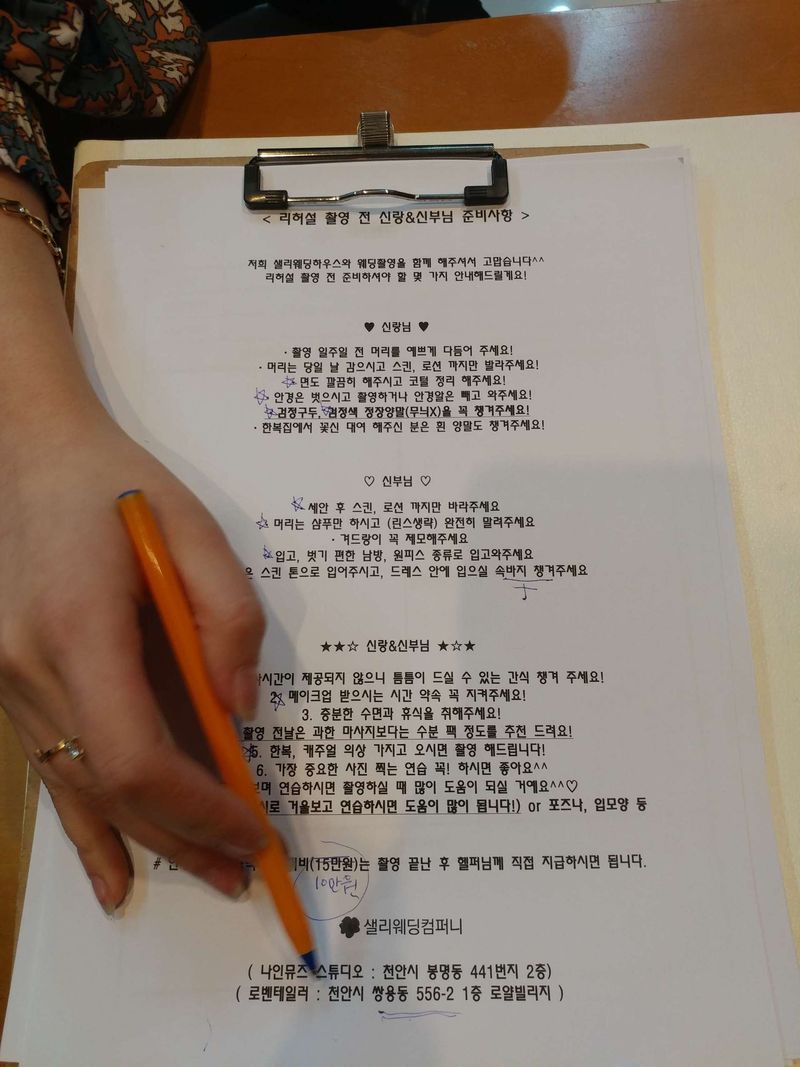 < 리허설 촬영 전 신랑&신부님 준비사항 >
저희 샐리웨딩하우스와 웨딩촬영을 함께 해주셔서 고맙습니다^^
리허설 촬영 전 준비하셔야 할 몇 가지 안내해드릴게요!
♥ 신랑님 ♥
· 촬영 일주일 전 머리를 예쁘게 다듬어 주세요!
· 머리는 당일 날 감으시고 스킨, 로션 까지만 발라주세요!
☆ 면도 깔끔히 해주시고 코털 정리 해주세요!
☆ 안경은 벗으시고 촬영하거나 안경알은 빼고 와주세요!
☆ 검정구두, 검정색 정장양말(무늬X)을 꼭 챙겨주세요!
· 한복집에서 꽃신 대여 해주신 분은 흰 양말도 챙겨주세요!
♡ 신부님 ♡
☆ 세안 후 스킨, 로션 까지만 바라주세요
☆ 머리는 샴푸만 하시고 (린스생략) 완전히 말려주세요
· 겨드랑이 꼭 제모해주세요
☆ 입고, 벗기 편한 남방, 원피스 종류로 입고와주세요
은 스킨 톤으로 입어주시고, 드레스 안에 입으실 속바지 챙겨주세요
★★☆ 신랑&신부님 ★☆★
시간이 제공되지 않으니 틈틈이 드실 수 있는 간식 챙겨 주세요!
2. 메이크업 받으시는 시간 약속 꼭 지켜주세요!
3. 충분한 수면과 휴식을 취해주세요!
촬영 전날은 과한 마사지보다는 수분 팩 정도를 추천 드려요!
5. 한복, 캐주얼 의상 가지고 오시면 촬영 해드립니다!
6. 가장 중요한 사진 찍는 연습 꼭! 하시면 좋아요^^
보며 연습하시면 촬영하실 때 많이 도움이 되실 거예요^^♡
시로 거울보고 연습하시면 도움이 많이 됩니다!) or 포즈나, 입모양 등
# (15만원)는 촬영 끝난 후 헬퍼님께 직접 지급하시면 됩니다.
10만원
샐리웨딩컴퍼니
( 나인뮤즈 스튜디오 : 천안시 봉명동 441번지 2층)
( 로벤테일러 : 천안시 쌍용동 556-2 1층 로얄빌리지 )